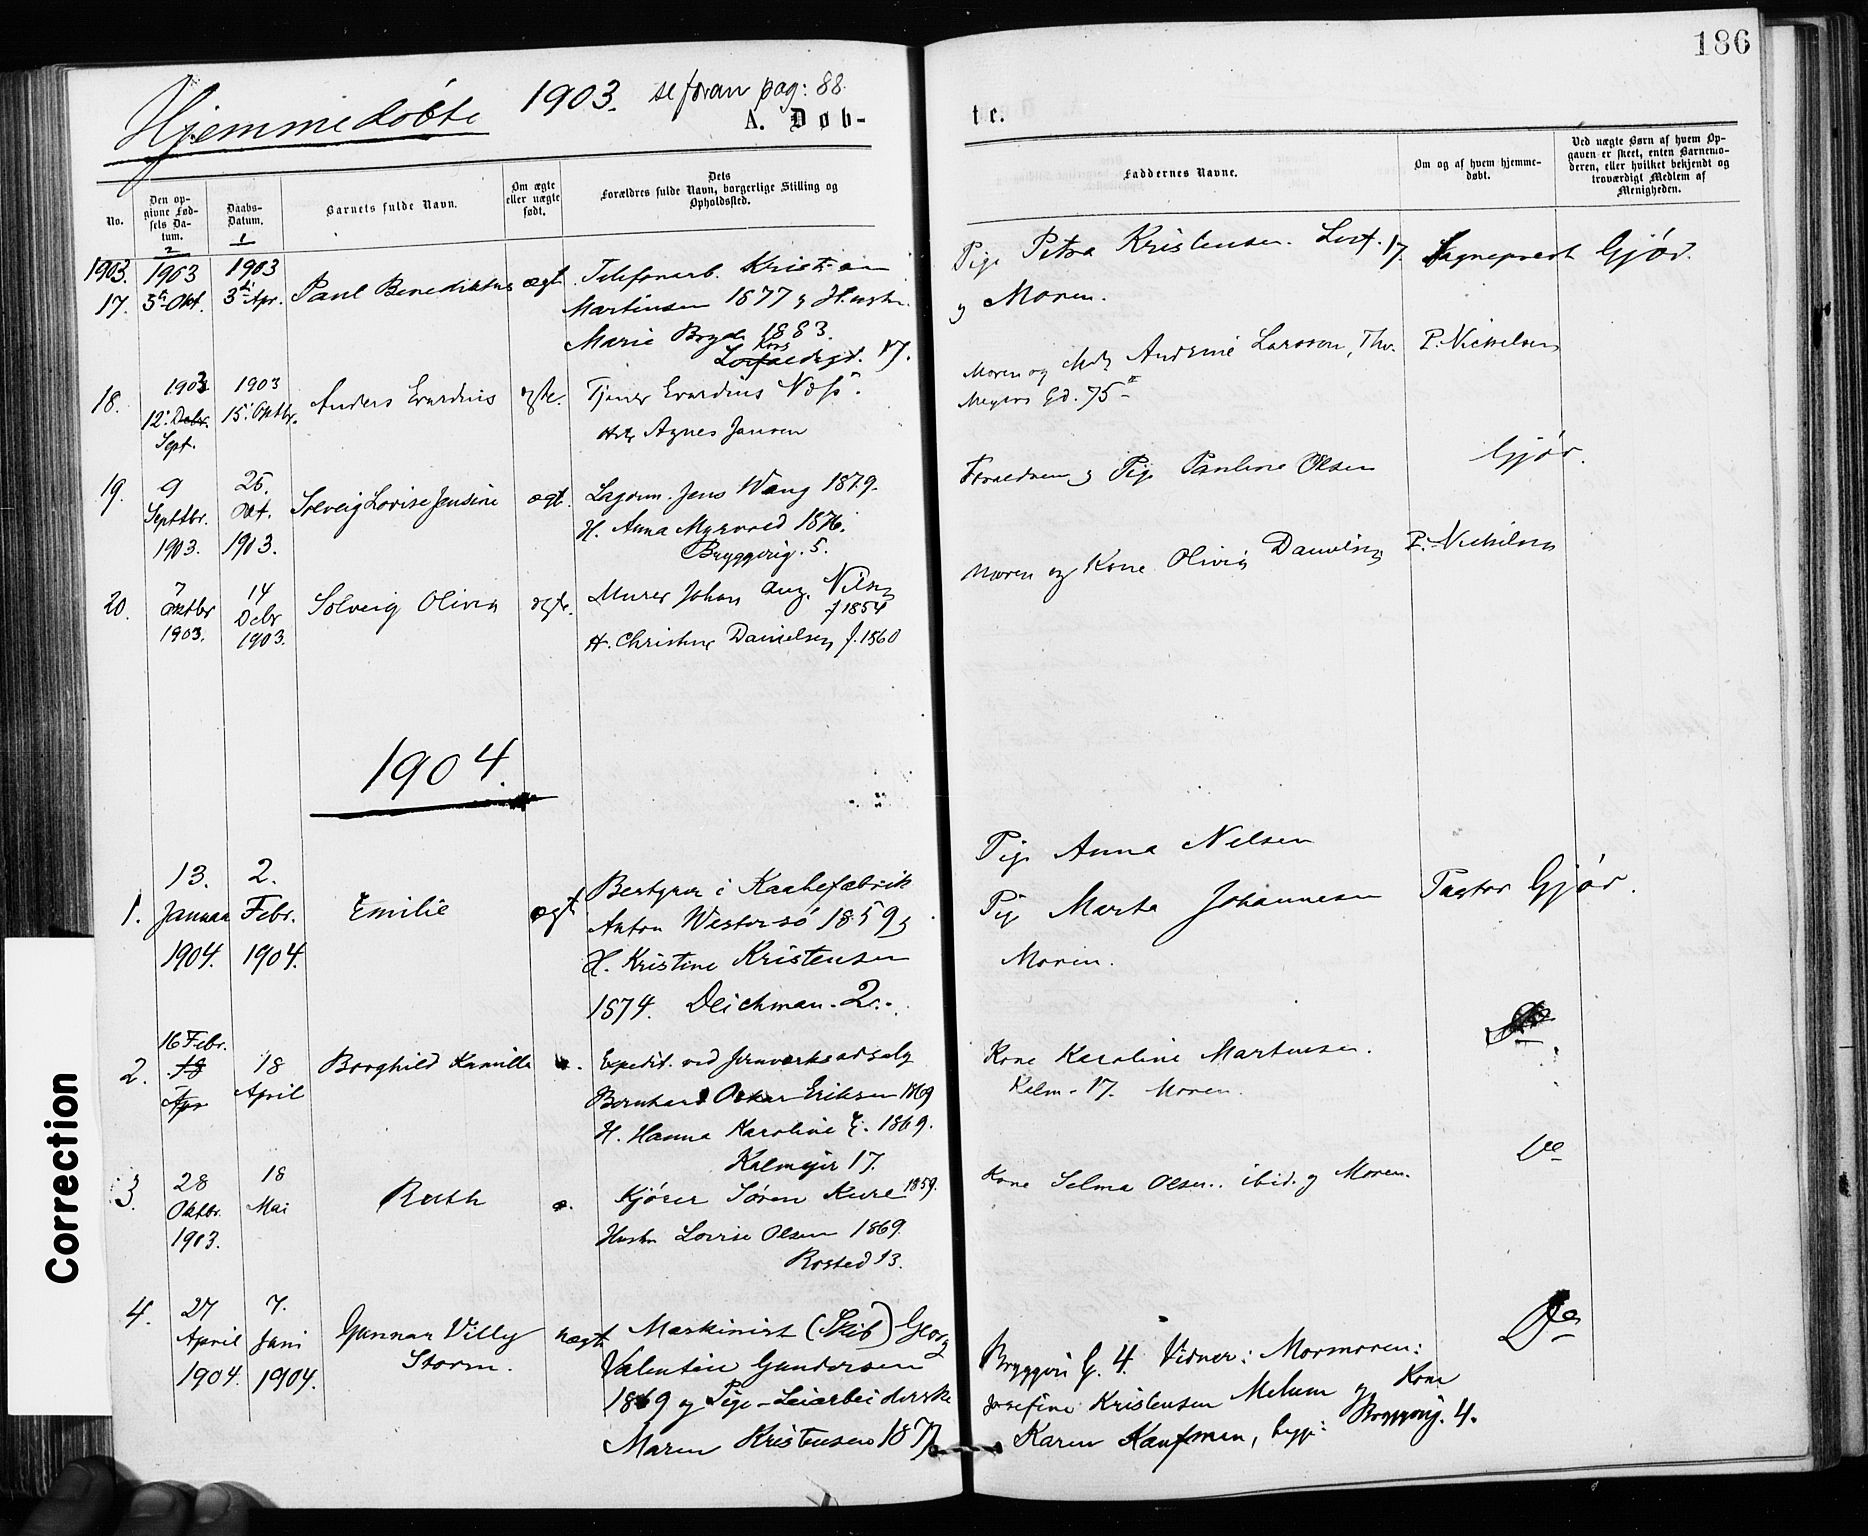 186
Hjemmedöbte 1903. se foran pag: 88.
A. Døb-
te.
No.
Den op-
givne Fød-
sels Da-
tum.
Daabs-
Datum.
Barnets fulde Navn.
Om ægte
eller uægte
født.
Dets
Forældres fulde Navn, borgerlige Stilling og
Opholdssted.
Faddernes Navne.
Om og af hvem hjemme-
døbt.
Ved uægte Børn af hvem Op-
gaven er skeet, enten Barnemo-
deren, eller hvilket bekjendt og
troværdigt Medlem af
Menigheden.
2
1
1903.
17.
1903
3die Okt.
1903
3di Apr.
Paul Benediktus
ægt
Telefonarb. Kristian
Martinsen 1877 og Hustru
Marie Bryde 1883.
17.
Pige Petra Kristensen. 17.
og Moren.
Sogneprest Gjör.
18.
1903
12. Debr.
Sept.
1903
15. Oktbr.
Anders Evardius
ægte.
Tjener Evardius Næss.
Agnes Jansen
Moren og Andrine Larsson, Thv.
Meyers Gd. 75
P. Nickelsen
19.
9
Septbr.
1903.
25.
Okt.
1903.
Solveig Lovise Jensine
ægt.
Lagerm. Jens Wang 1879.
H. Anna Myrvold 1876.
Bryggerig. 5.
Forældrene og Pige Pauline Olsen
Gjör.
20.
7
Oktbr
1903.
14
Debr
1903.
Solveig Olivia
ægte.
Murer Johan Aug. Nilsen
f 1854
H. Christine Danielsen f. 1860
Moren og Kone Olivia Danielsen
P. Nickelsen
1904.
1.
13.
Januar
1904.
2.
Febr.
1904.
Emilie
ægt
Bestyrer i Kaabefabrik
Anton Westersö 1859 og
H. Kristine Kristensen
1874. Deichman. 2.
Pige Anna Nelsen
Pige Marta Johannesen
Moren.
Pastor Gjör.
2.
16 Febr.
18
Apr
18
April
Borghild Kamilla
Expedit. ved Jernvarkeudsalg
Bernhard Oskar Eriksen 1869
H. Hanna Karoline E. 1869.
Kalmejer 17.
Kone Karoline Martinsen.
Kalm. 17. Moren.
Do
3.
28
Oktbr.
1903.
18
Mai
Ruth
Kjörer Sören Kure 1859.
Hustru Lovise Olsen 1869.
Rosted 13.
Kone Selma Olsen. ibid. og Moren.
Do
4.
27
April
1904.
7.
Juni
1904.
Gunnar Villy
Storm.
uægt
Maskinist (Skib) Georg
Valentin Gundersen
1869 og Pige Leiarbeiderske
Maren Kristensen 187
Bryggeri G. 4. Vidner: Mormoren:
Josefine Kristensen Melum og Kone
Karen Kaufman, begge: Bryggerig. 4.
Do
Correction